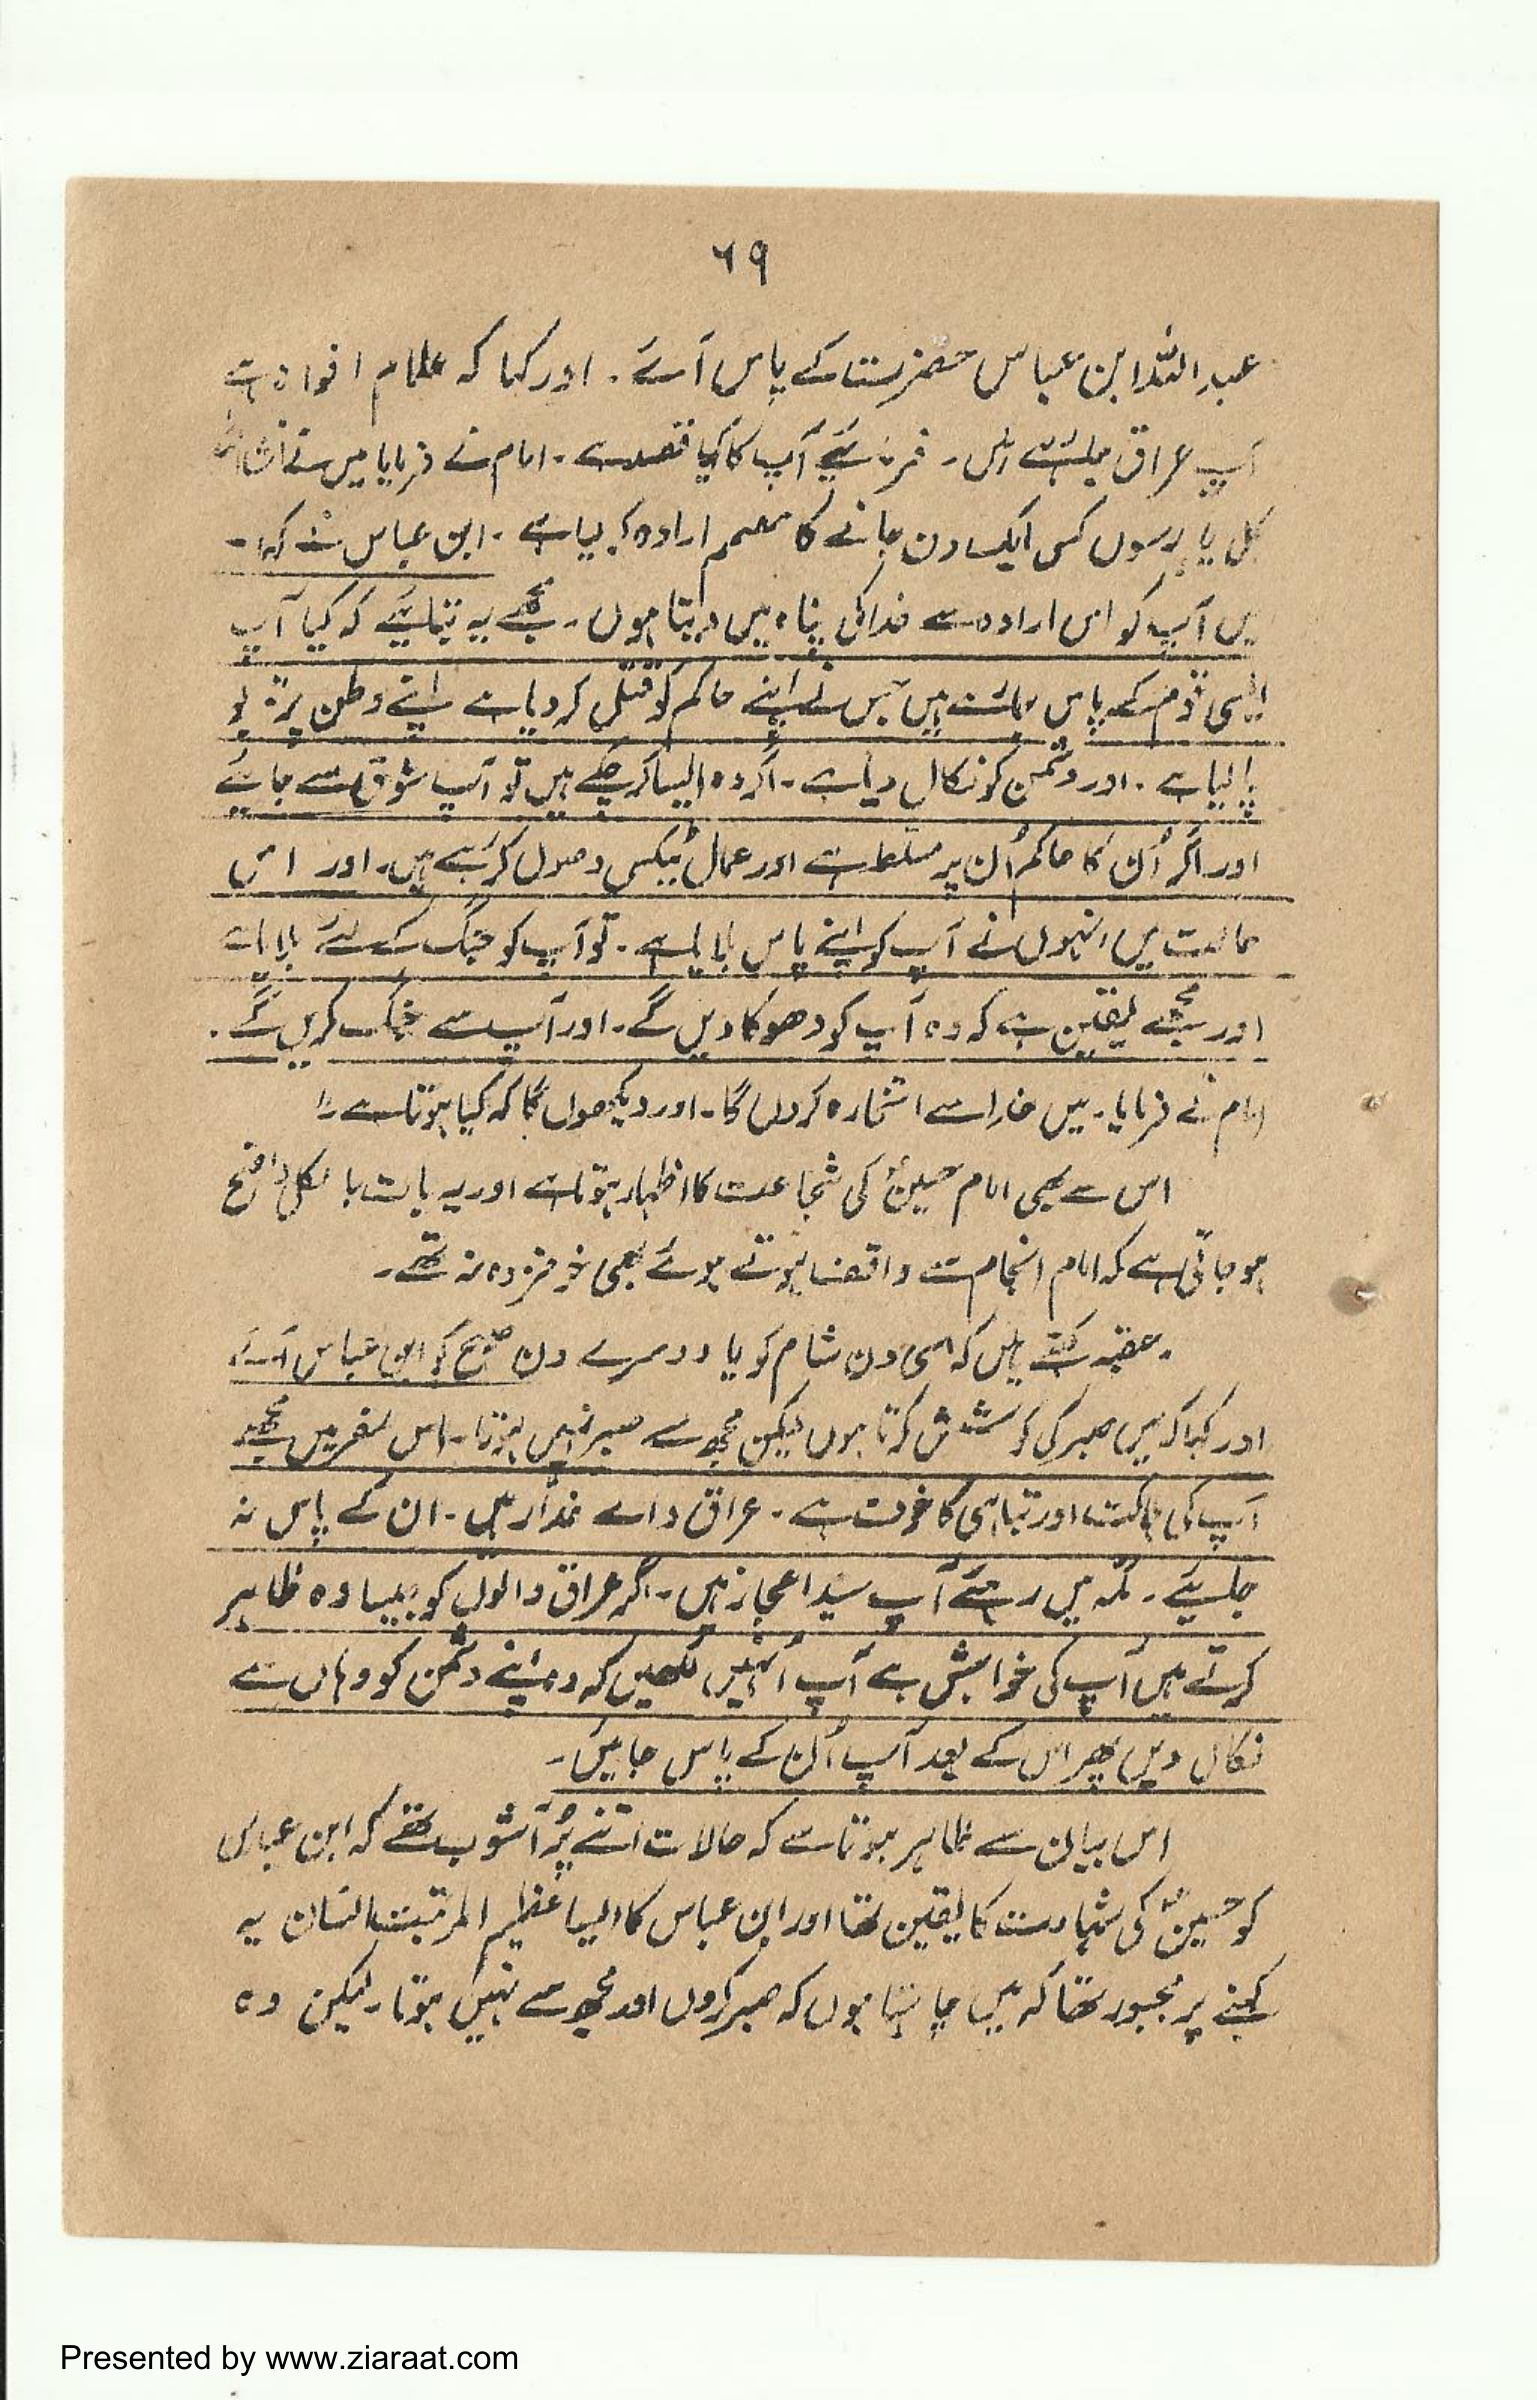 ۶۹
عبداللہ ابن عباس حضرت کے پاس آئے۔ اور کہا کہ عام افواہ ہے
آپ عراق جا رہے ہیں۔ فرمائیے آپ کا کیا قصد ہے۔ امام نے فرمایا میں نے انشاءاللہ
کل یا پرسوں کسی ایک دن جانے کا مصمم ارادہ کر لیا ہے۔ ابن عباس نے کہا۔
میں آپ کو اس ارادہ سے خدا کی پناہ میں دیتا ہوں۔ مجھے یہ بتائیے کہ کیا آپ
ایسی قوم کے پاس جا رہے ہیں جس نے اپنے حاکم کو قتل کر دیا ہے اپنے وطن پر قابو
پا لیا ہے۔ اور دشمن کو نکال دیا ہے۔ اگر وہ ایسا کر چکے ہیں تو آپ شوق سے جائیے
اور اگر اُن کا حاکم اُن پر مسلط ہے اور عمال ٹیکس وصول کر رہے ہیں۔ اور اس
حالت میں انہوں نے آپ کو اپنے پاس بلایا ہے۔ تو آپ کو جنگ کے لئے بلایا ہے
اور مجھے یقین ہے کہ وہ آپ کو دھوکا دیں گے۔ اور آپ سے جنگ کریں گے۔
امام نے فرمایا۔ میں خدا سے استخارہ کروں گا۔ اور دیکھوں گا کہ کیا ہوتا ہے۔
اس سے بھی امام حسینؑ کی شجاعت کا اظہار ہوتا ہے اور یہ بات بالکل واضح
ہو جاتی ہے کہ امام انجام سے واقف ہوتے ہوئے بھی خوفزدہ نہ تھے۔
عقبہ کہتے ہیں کہ اسی دن شام کو یا دوسرے دن صبح کو ابن عباس آئے
اور کہا کہ میں صبر کی کوشش کرتا ہوں لیکن مجھ سے صبر نہیں ہوتا۔ اس سفر میں مجھے
آپ کی ہلاکت اور تباہی کا خوف ہے۔ عراق والے غدّار ہیں۔ ان کے پاس نہ
جائیے۔ مکہ میں رہئے آپ سید اعجاز ہیں۔ اگر عراق والوں کو جیسا وہ ظاہر
کرتے ہیں آپ کی خواہش ہے آپ اُنہیں لکھیں کہ وہ اپنے دشمن کو وہاں سے
نکال دیں پھر اس کے بعد آپ اُن کے پاس جائیں۔
اس بیان سے ظاہر ہوتا ہے کہ حالات اتنے پُر آشوب تھے کہ ابن عباس
کو حسینؑ کی شہادت کا یقین تھا اور ابن عباس کا ایسا عظیم المرتبت انسان یہ
کہنے پر مجبور تھا کہ میں چاہتا ہوں کہ صبر کروں اور مجھ سے نہیں ہوتا۔ لیکن وہ
Presented by www.ziaraat.com